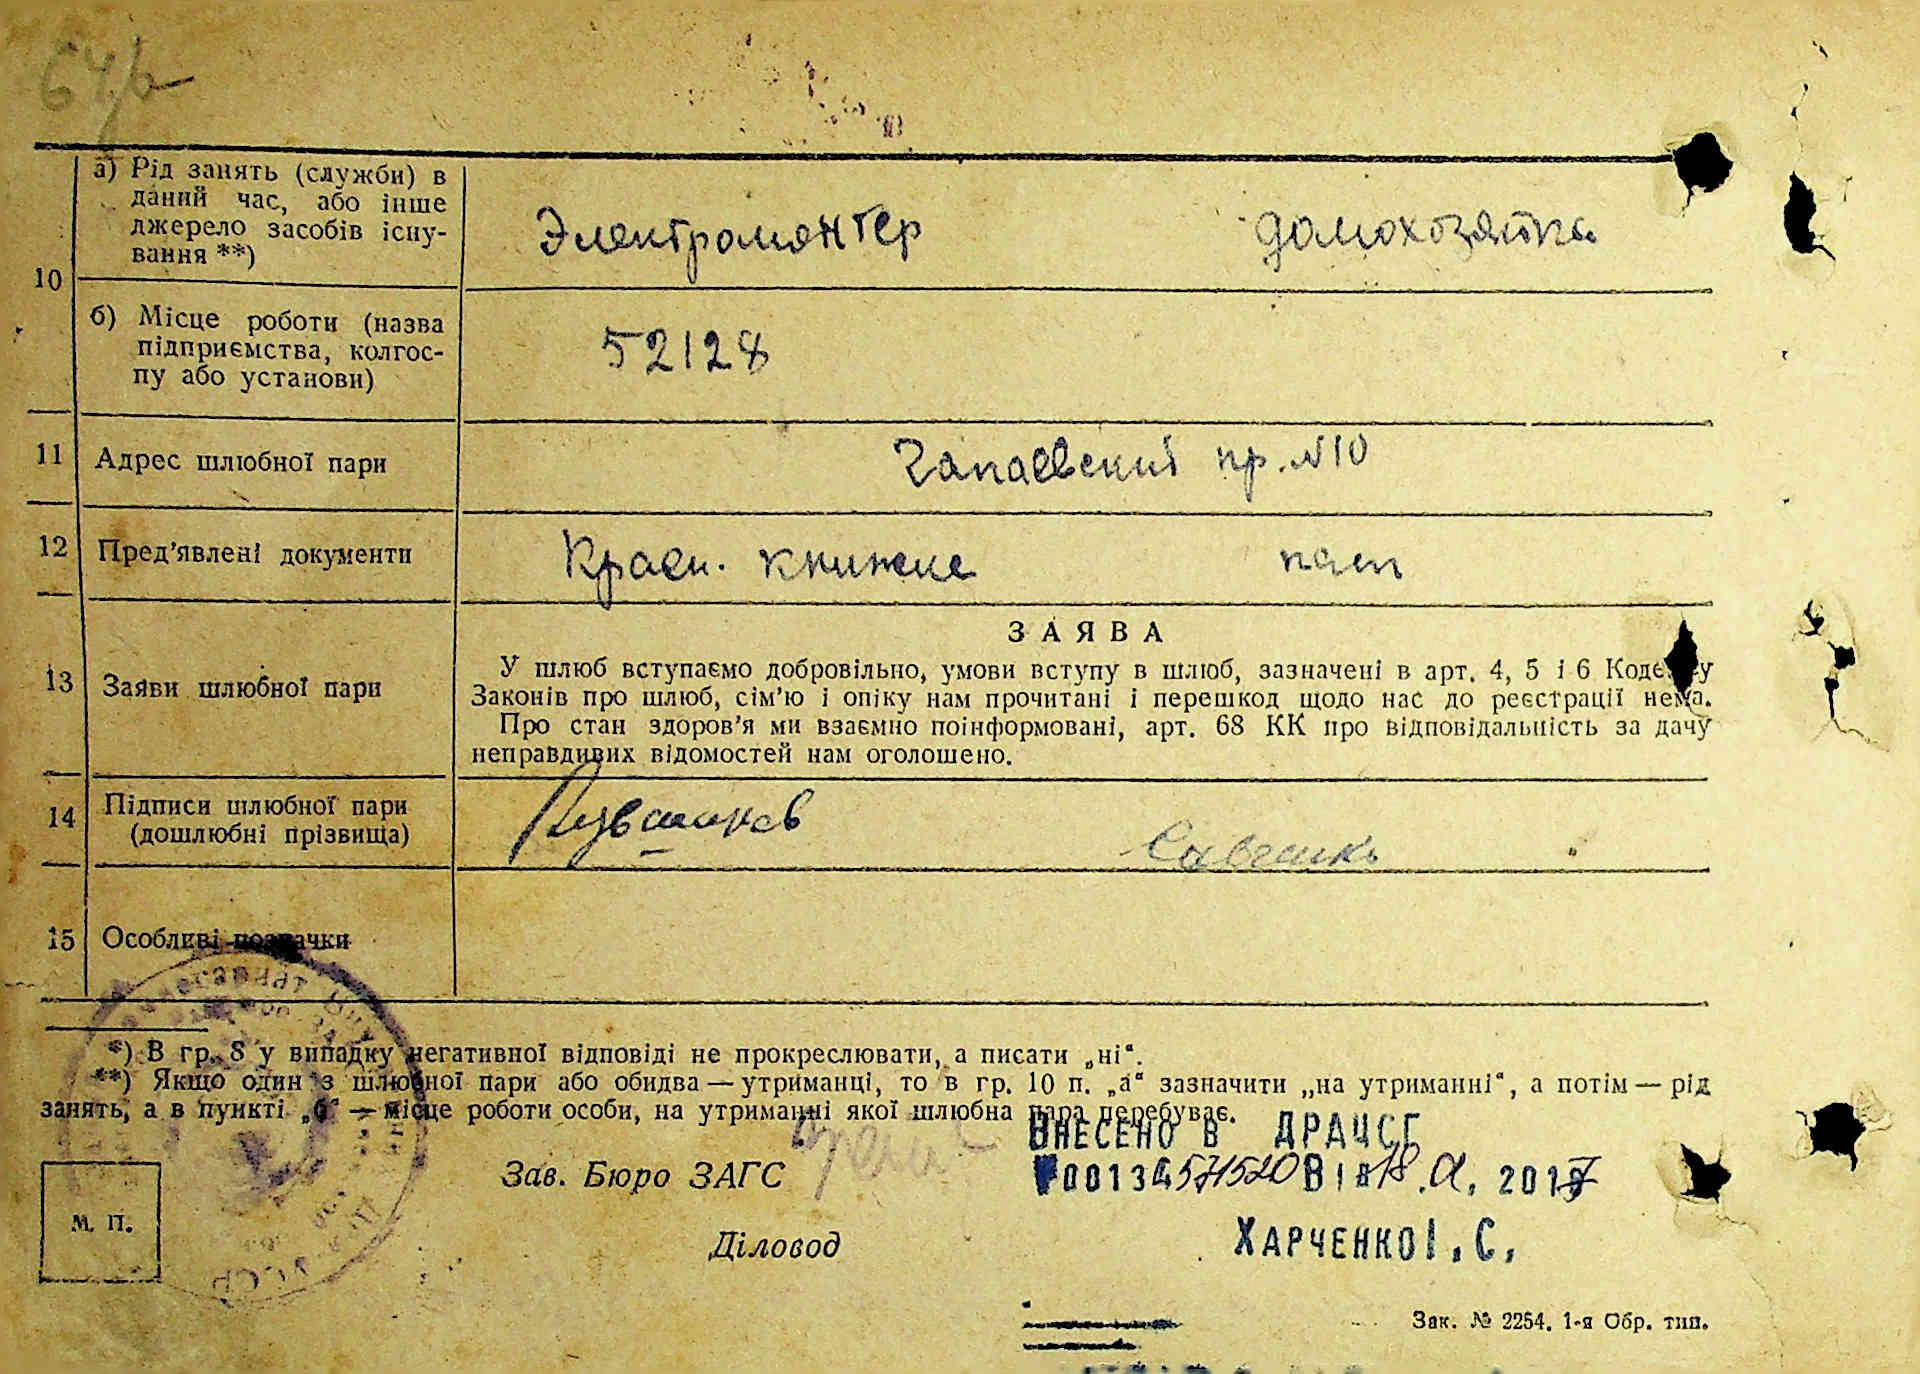 а) Рід занять (служби) в
даний час, або інше
джерело засобів існу-
вання **)
Электромонтер домохозяйка
10
б) Місце роботи (назва
підприємства, колгос-
пу або установи)
52128
11 Адрес шлюбної пари
Чапаевский пр. №10
12 Пред'явлені документи
Красн. книжке пасп
13 Заяви шлюбної пари
ЗАЯВА
У шлюб вступаємо добровільно, умови вступу в шлюб, зазначені в арт. 4, 5 і 6 Кодексу
Законів про шлюб, сім'ю і опіку нам прочитані і перешкод щодо нас до реєстрації нема.
Про стан здоров'я ми взаємно поінформовані, арт. 68 КК про відповідальність за дачу
неправдивих відомостей нам оголошено.
14 Підписи шлюбної пари
(дошлюбні прізвища)
15 Особливі позначки
*) В гр. 8 у випадку негативної відповіді не прокреслювати, а писати „ні“.
**) Якщо один з шлюбної пари або обидва — утриманці, то в гр. 10 п. „а“ зазначити „на утриманні“, а потім — рід
занять, а в пункті „б“ — місце роботи особи, на утриманні якої шлюбна пара перебуває.
ВНЕСЕНО В ДРАЦСГ
Зав. Бюро ЗАГС
2017
М. П.
Діловод
ХАРЧЕНКО І. С.
Зак. № 2254. 1-я Обр. тип.